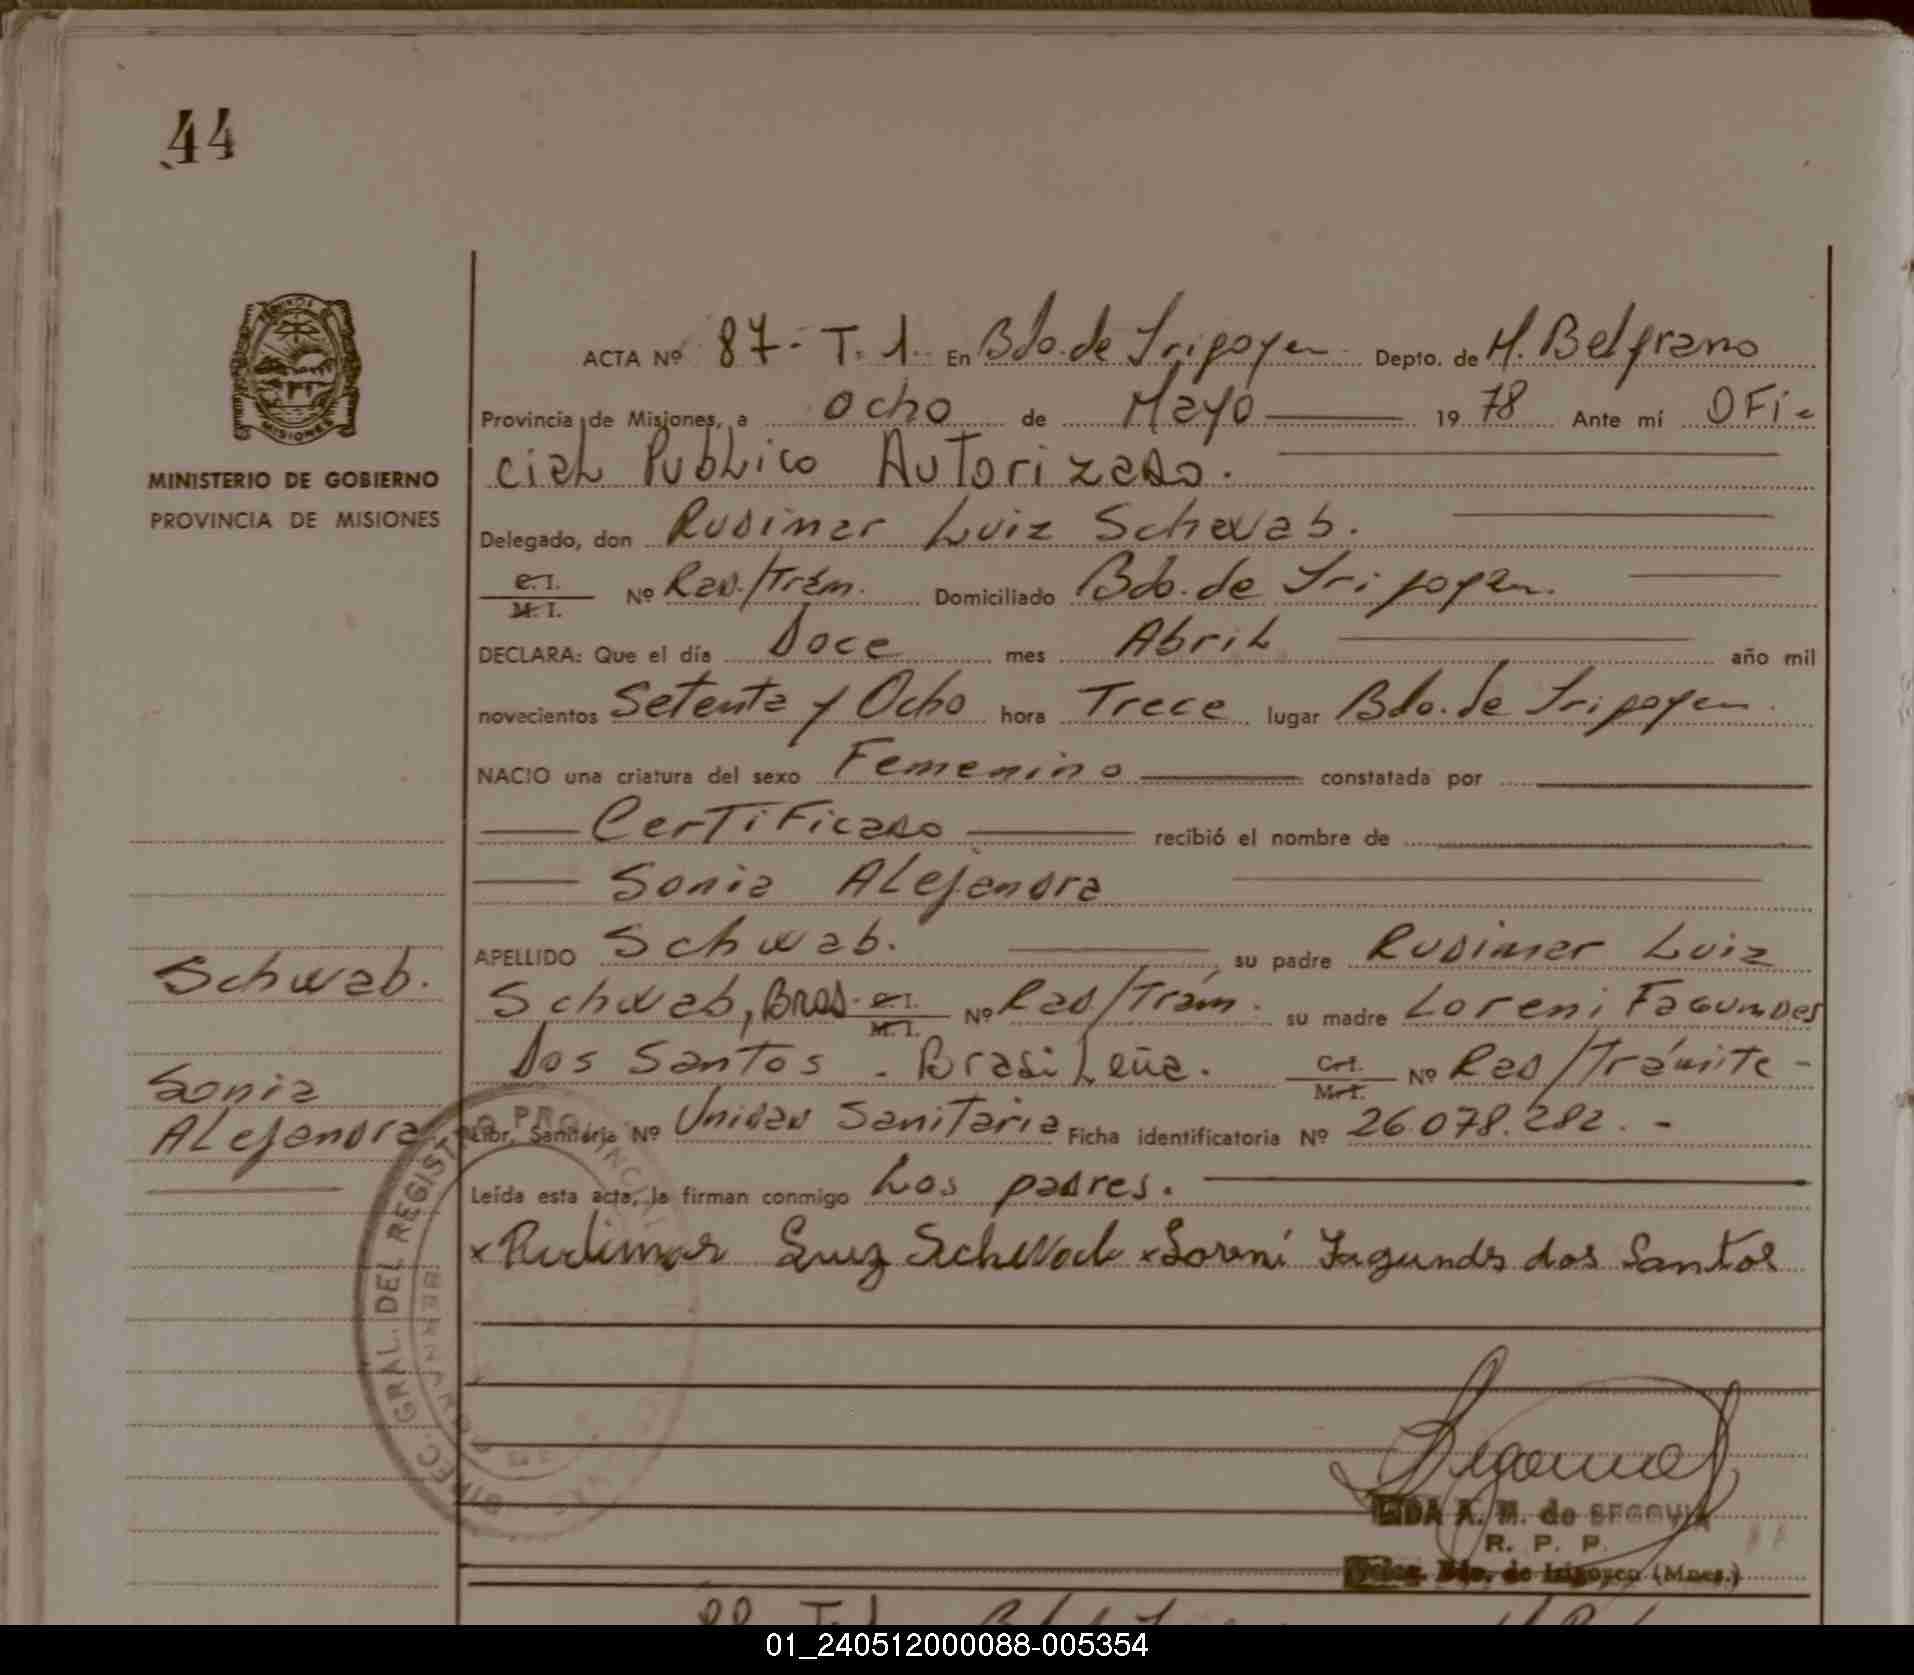 44
MINISTERIO DE GOBIERNO
PROVINCIA DE MISIONES
Schwab.
Sonia
Alejandra
ACTA Nº 87- T. 1. En Bdo. de Irigoyen Depto. de M. Belgrano
Provincia de Misiones, a Ocho de Mayo 1978 Ante mí OFi-
cial Publico Autorizado.
Delegado, don Rudimar Luiz Schwab.
C. I.
M. I. Nº Rad./Trám. Domiciliado Bdo. de Irigoyen.
DECLARA: Que el día Doce mes Abril año mil
novecientos Setenta y Ocho hora Trece lugar Bdo. de Irigoyen.
NACIO una criatura del sexo Femenino constatada por
Certificado recibió el nombre de
Sonia Alejandra
APELLIDO Schwab. su padre Rudimar Luiz
Schwab, Bras. C. I. M. I. Nº Rad/Trám. su madre Loreni Fagundes
Dos Santos - Brasileña. C. I. M. I. Nº Rad/Trámite -
Libr. Sanitaria Nº Unidad Sanitaria Ficha identificatoria Nº 26.078.282. -
Leída esta acta, la firman conmigo Los padres.
x Rudimar Luiz Schwab x Loreni Fagundes dos Santos
DIREC. GRAL. DEL REGISTRO PROVINCIAL
A. M. de SEGOVIA
R. P. P.
Bdo. de Irigoyen (Mnes.)
01_240512000088-005354